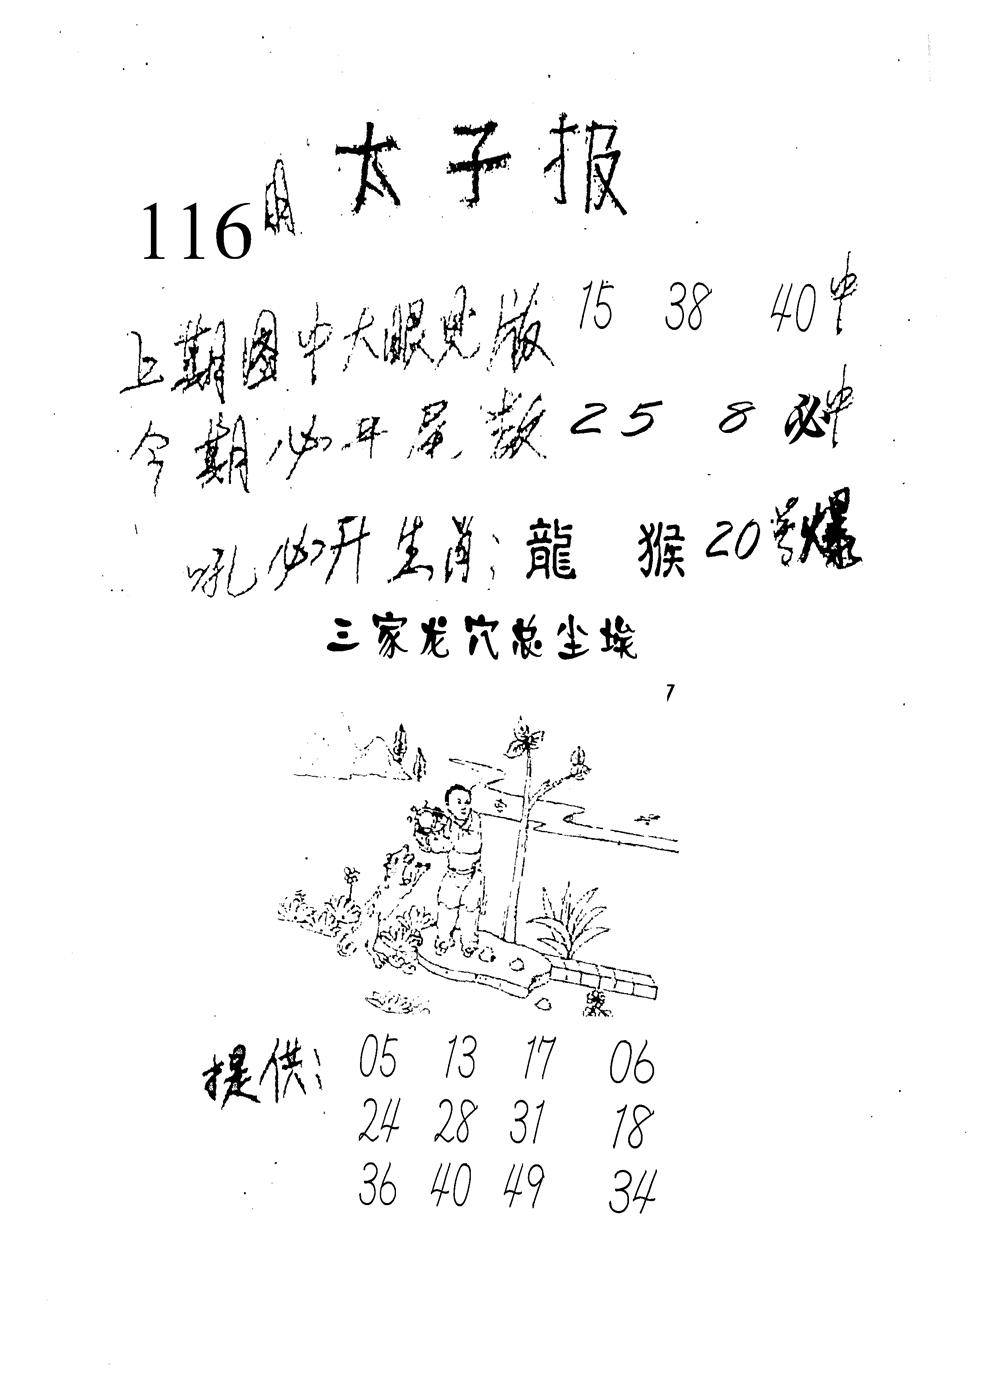 太子报
116期
上期图中大眼见版 15 38 40中
今期必开尾数 2 5 8 必中
吼必开生肖：龍 猴 20号爆
三家龙穴总尘埃
7
提供： 05 13 17 06
24 28 31 18
36 40 49 34